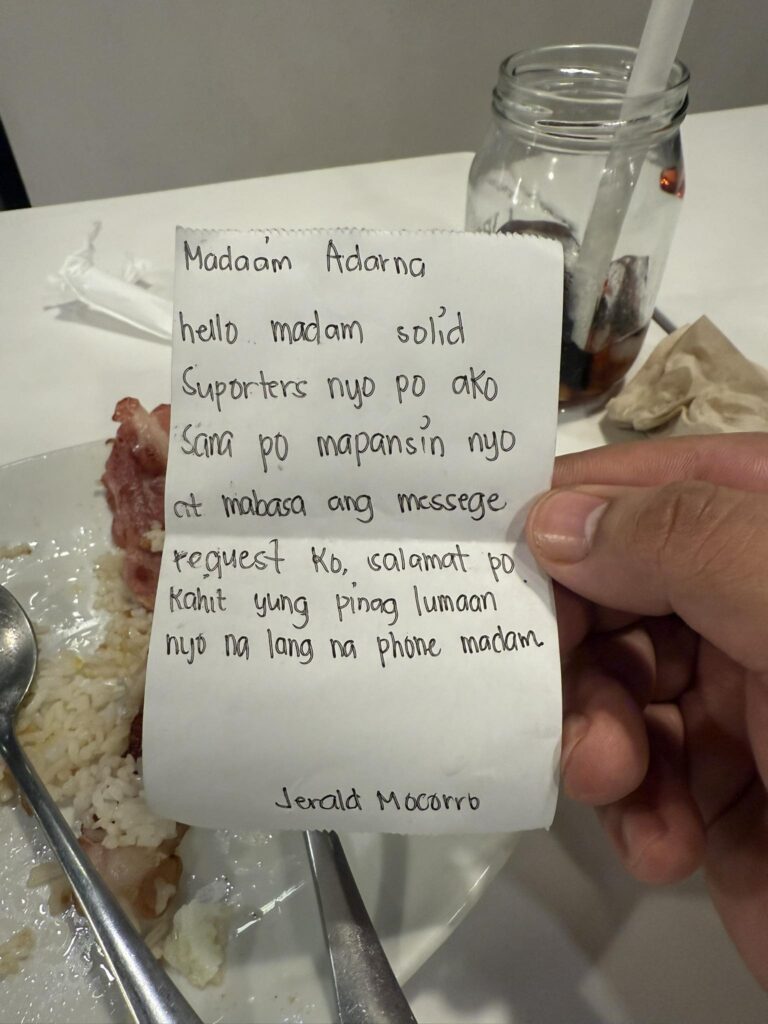 Madaam Adarna
hello madam solid
Suporters nyo po ako
Sana po mapansin nyo
at mabasa ang messege
request ko, salamat po.
Kahit yung pinag lumaan
nyo na lang na phone madam
Jerald Mocorro